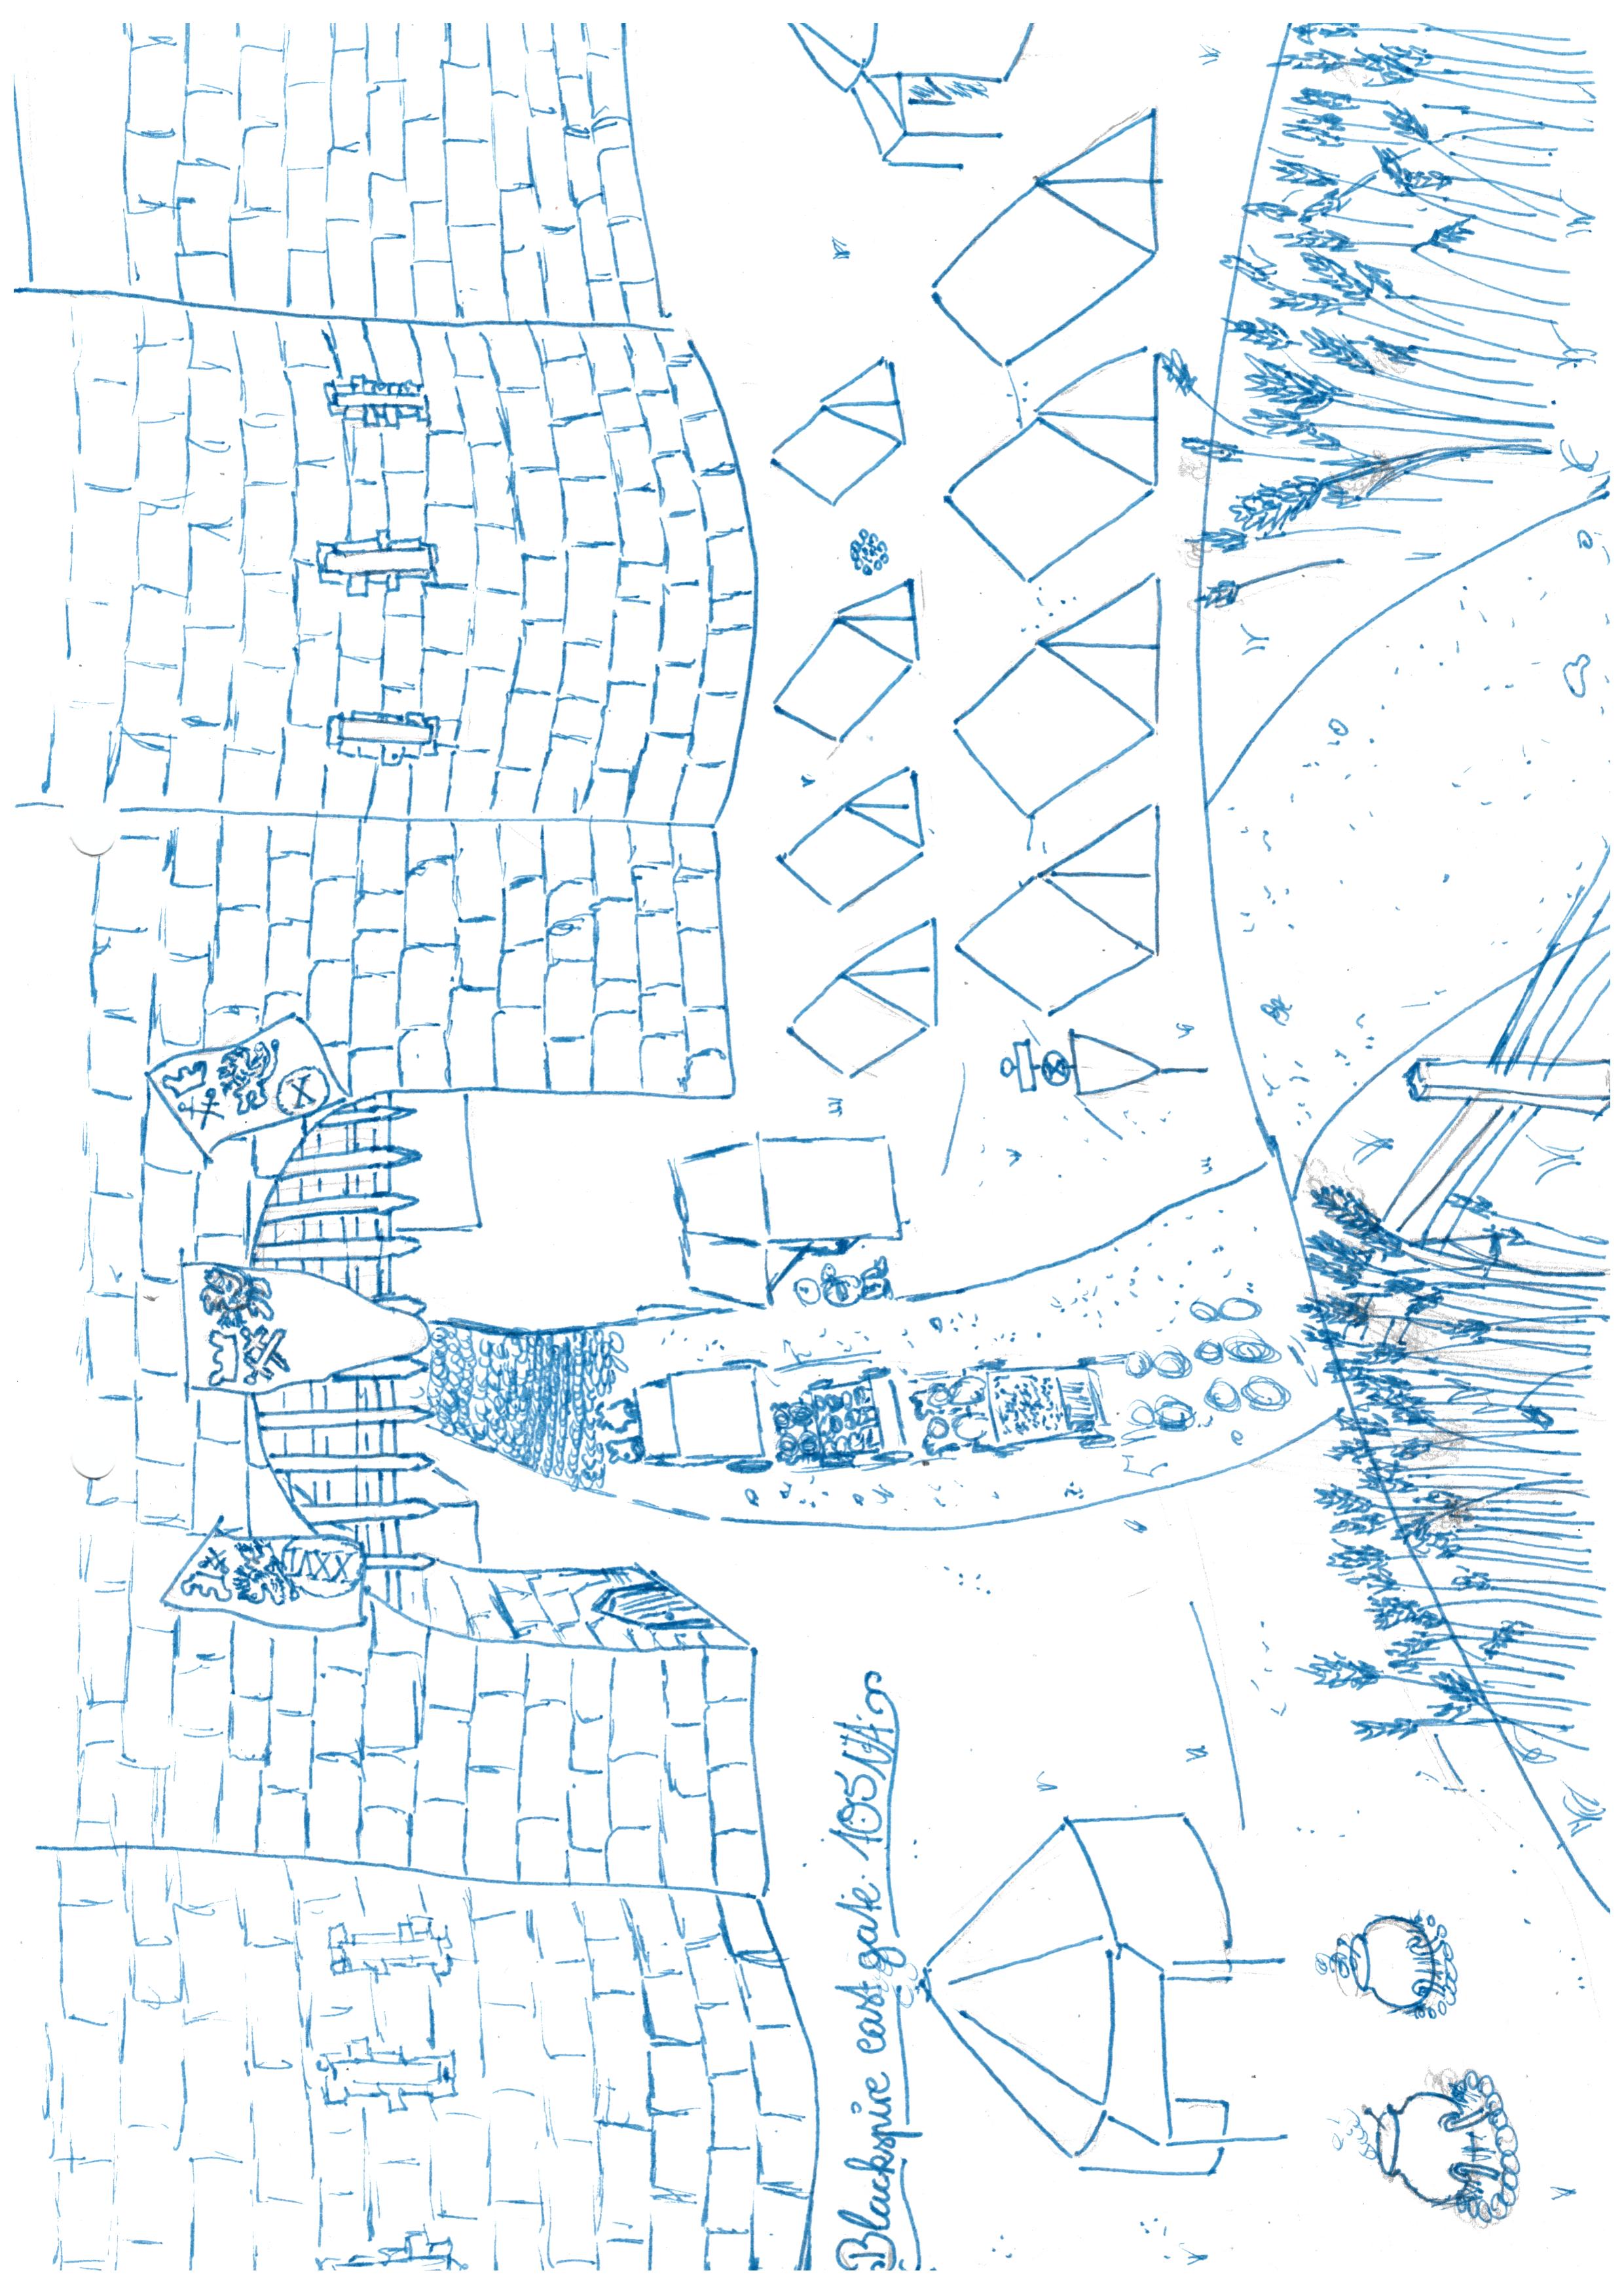 Blackspire east gate 105 NA